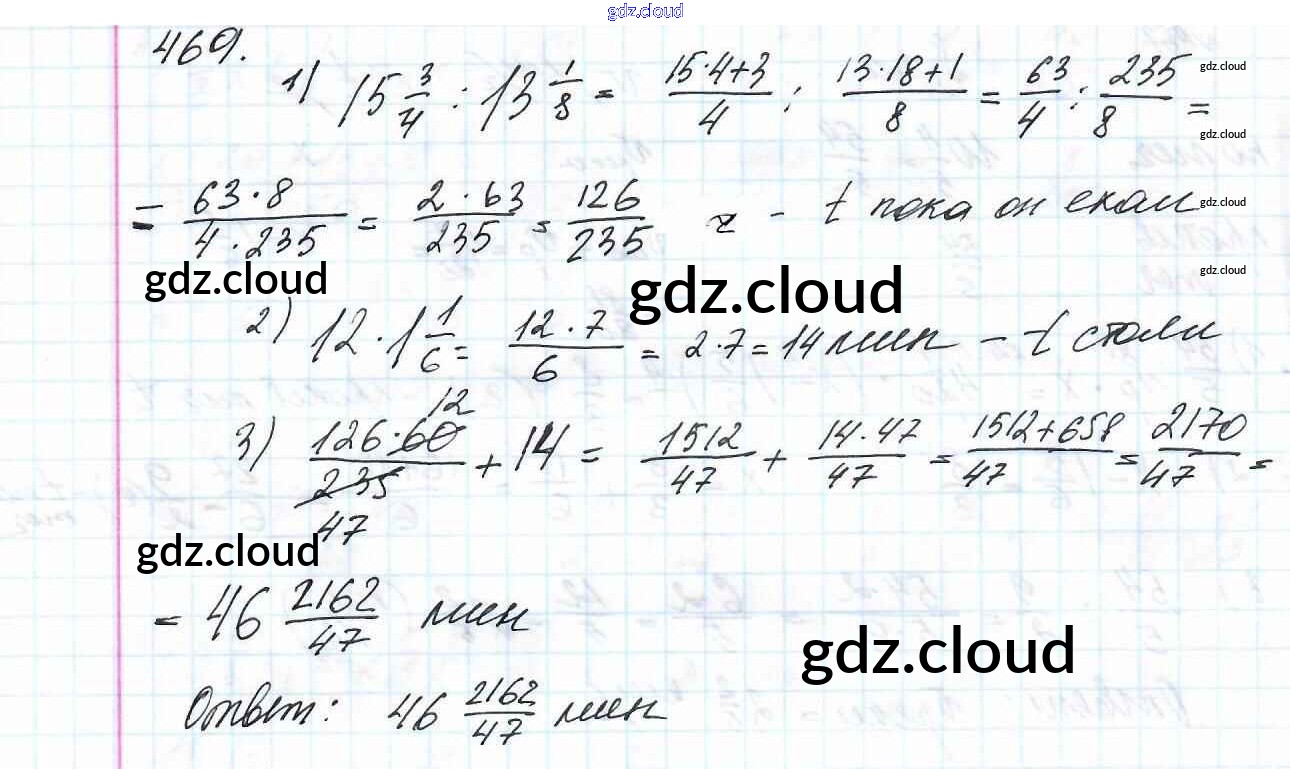 gdz.cloud
469.
1) 15 3/4 : 13 1/8 = (15·4+3)/4 : (13·18+1)/8 = 63/4 : 235/8 =
gdz.cloud
gdz.cloud
= (63·8)/(4·235) = (2·63)/235 = 126/235 ч - t пока он ехал
gdz.cloud
gdz.cloud
gdz.cloud
gdz.cloud
2) 12·1 1/6 = (12·7)/6 = 2·7 = 14 мин - t стоял
3) (126·60)/235 + 14 = 1512/47 + (14·47)/47 = (1512+658)/47 = 2170/47 =
12
47
gdz.cloud
= 46 2162/47 мин
gdz.cloud
Ответ: 46 2162/47 мин